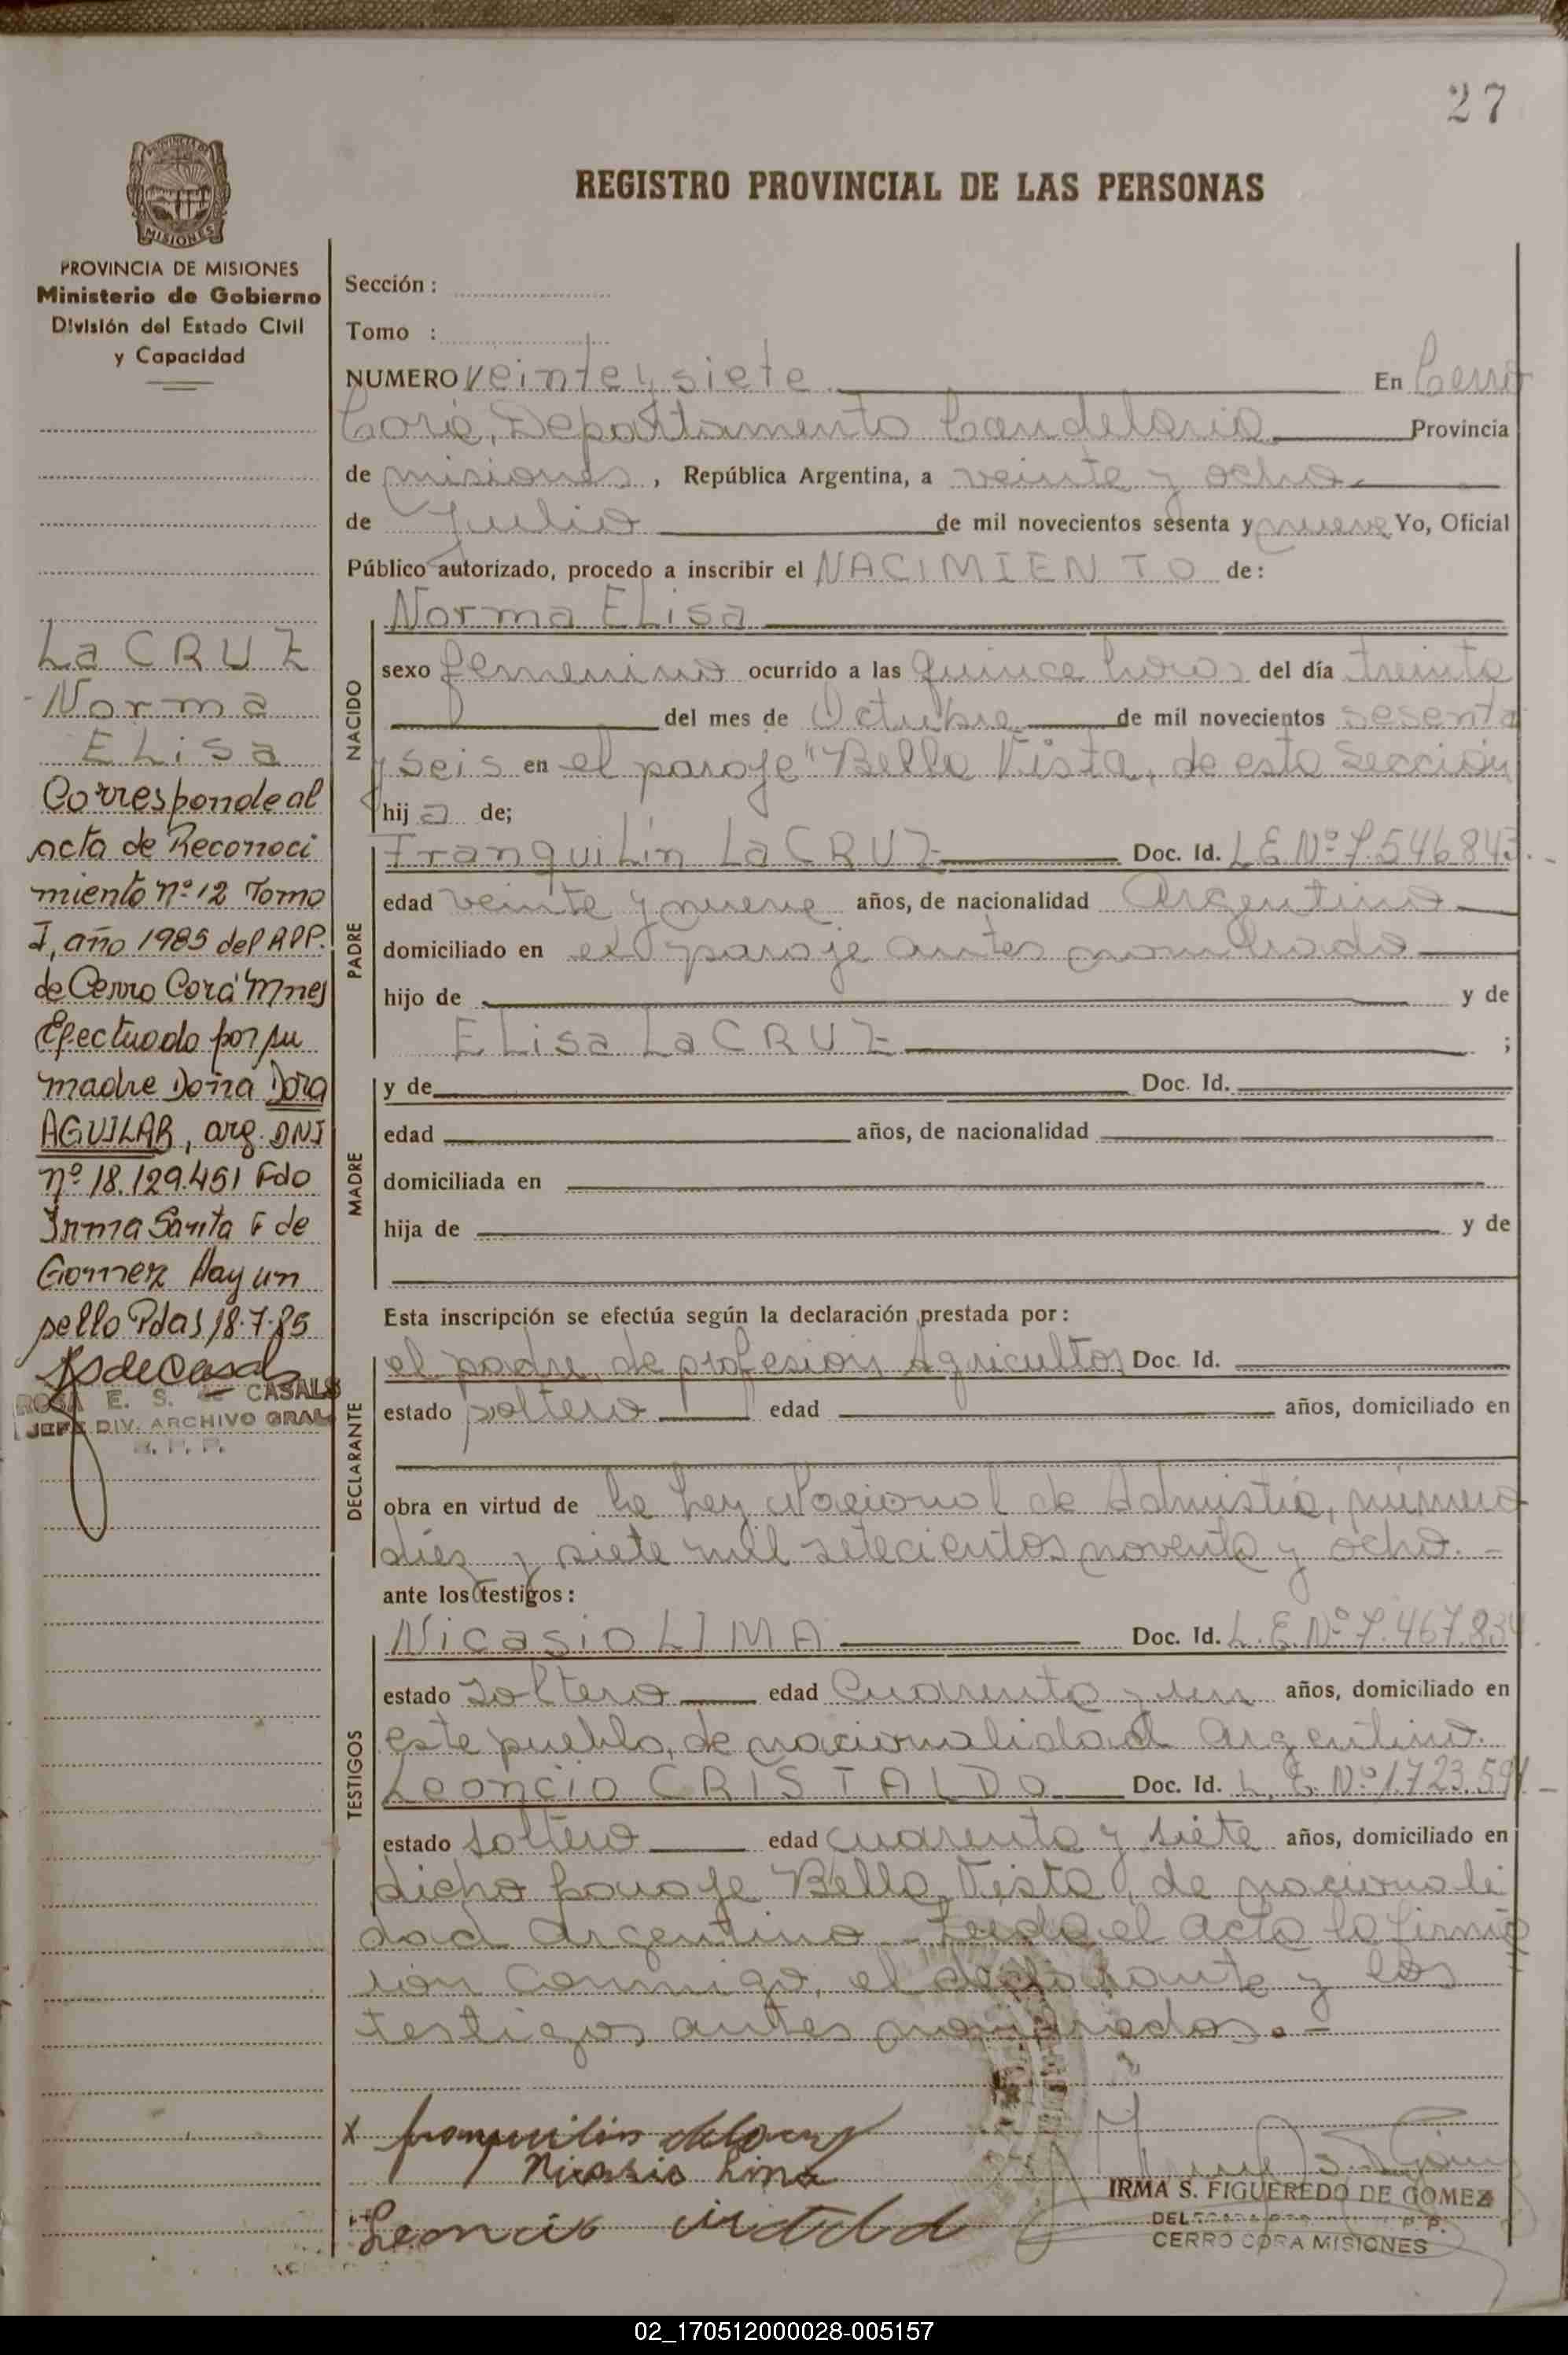 27
REGISTRO PROVINCIAL DE LAS PERSONAS
PROVINCIA DE MISIONES
Ministerio de Gobierno
División del Estado Civil
y Capacidad
La CRUZ
Norma
ELisa
Corresponde al
acta de Reconoci
miento nº 12 Tomo
I, año 1985 del RPP.
de Cerro Corá Mnes
Efectuado por su
madre Doña Dora
AGUILAR, arg. DNI
nº 18.129.451 Fdo
Irma Santa F de
Gomez Hay un
sello Pdas 18.7.85
ROSA E. S. de CASALS
JEFE DIV. ARCHIVO GRAL
R. P. P.
Sección :
Tomo :
NUMERO veinte y siete En Cerro
Corá, Departamento Candelaria Provincia
de misiones, República Argentina, a veinte y ocho
de Julio de mil novecientos sesenta y nueve Yo, Oficial
Público autorizado, procedo a inscribir el NACIMIENTO de:
NACIDO
Norma ELisa
sexo femenino ocurrido a las quince horas del día treinta
del mes de Octubre de mil novecientos sesenta
y seis en el paraje "Bella Vista, de esta Sección
hij a de;
PADRE
Tranquilín La CRUZ Doc. Id. L.E. Nº 7.546.843.-
edad veinte y nueve años, de nacionalidad Argentina
domiciliado en el paraje antes nombrado
hijo de y de
ELisa La CRUZ ;
MADRE
y de Doc. Id.
edad años, de nacionalidad
domiciliada en
hija de y de
Esta inscripción se efectúa según la declaración prestada por:
DECLARANTE
el padre, de profesión Agricultor Doc. Id.
estado soltero edad años, domiciliado en
obra en virtud de la Ley Nacional de Admistia, número
diez y siete mil setecientos noventa y ocho.-
ante los testigos:
TESTIGOS
Nicasio LIMA Doc. Id. L.E. Nº 7.467.834.
estado soltero edad cuarenta y un años, domiciliado en
este pueblo, de nacionalidad Argentina.
Leoncio CRISTALDO Doc. Id. L.E. Nº 1.723.591.-
estado soltero edad cuarenta y siete años, domiciliado en
dicho paraje Bella Vista, de nacionali
dad Argentina.- Leida el acta la firma
ron conmigo, el declarante y los
testigos antes nombrados.-
x Tranquilin delacruz
Nicasio Lima
Leoncio
IRMA S. FIGUEREDO DE GOMEZ
CERRO CORA MISIONES
02_170512000028-005157